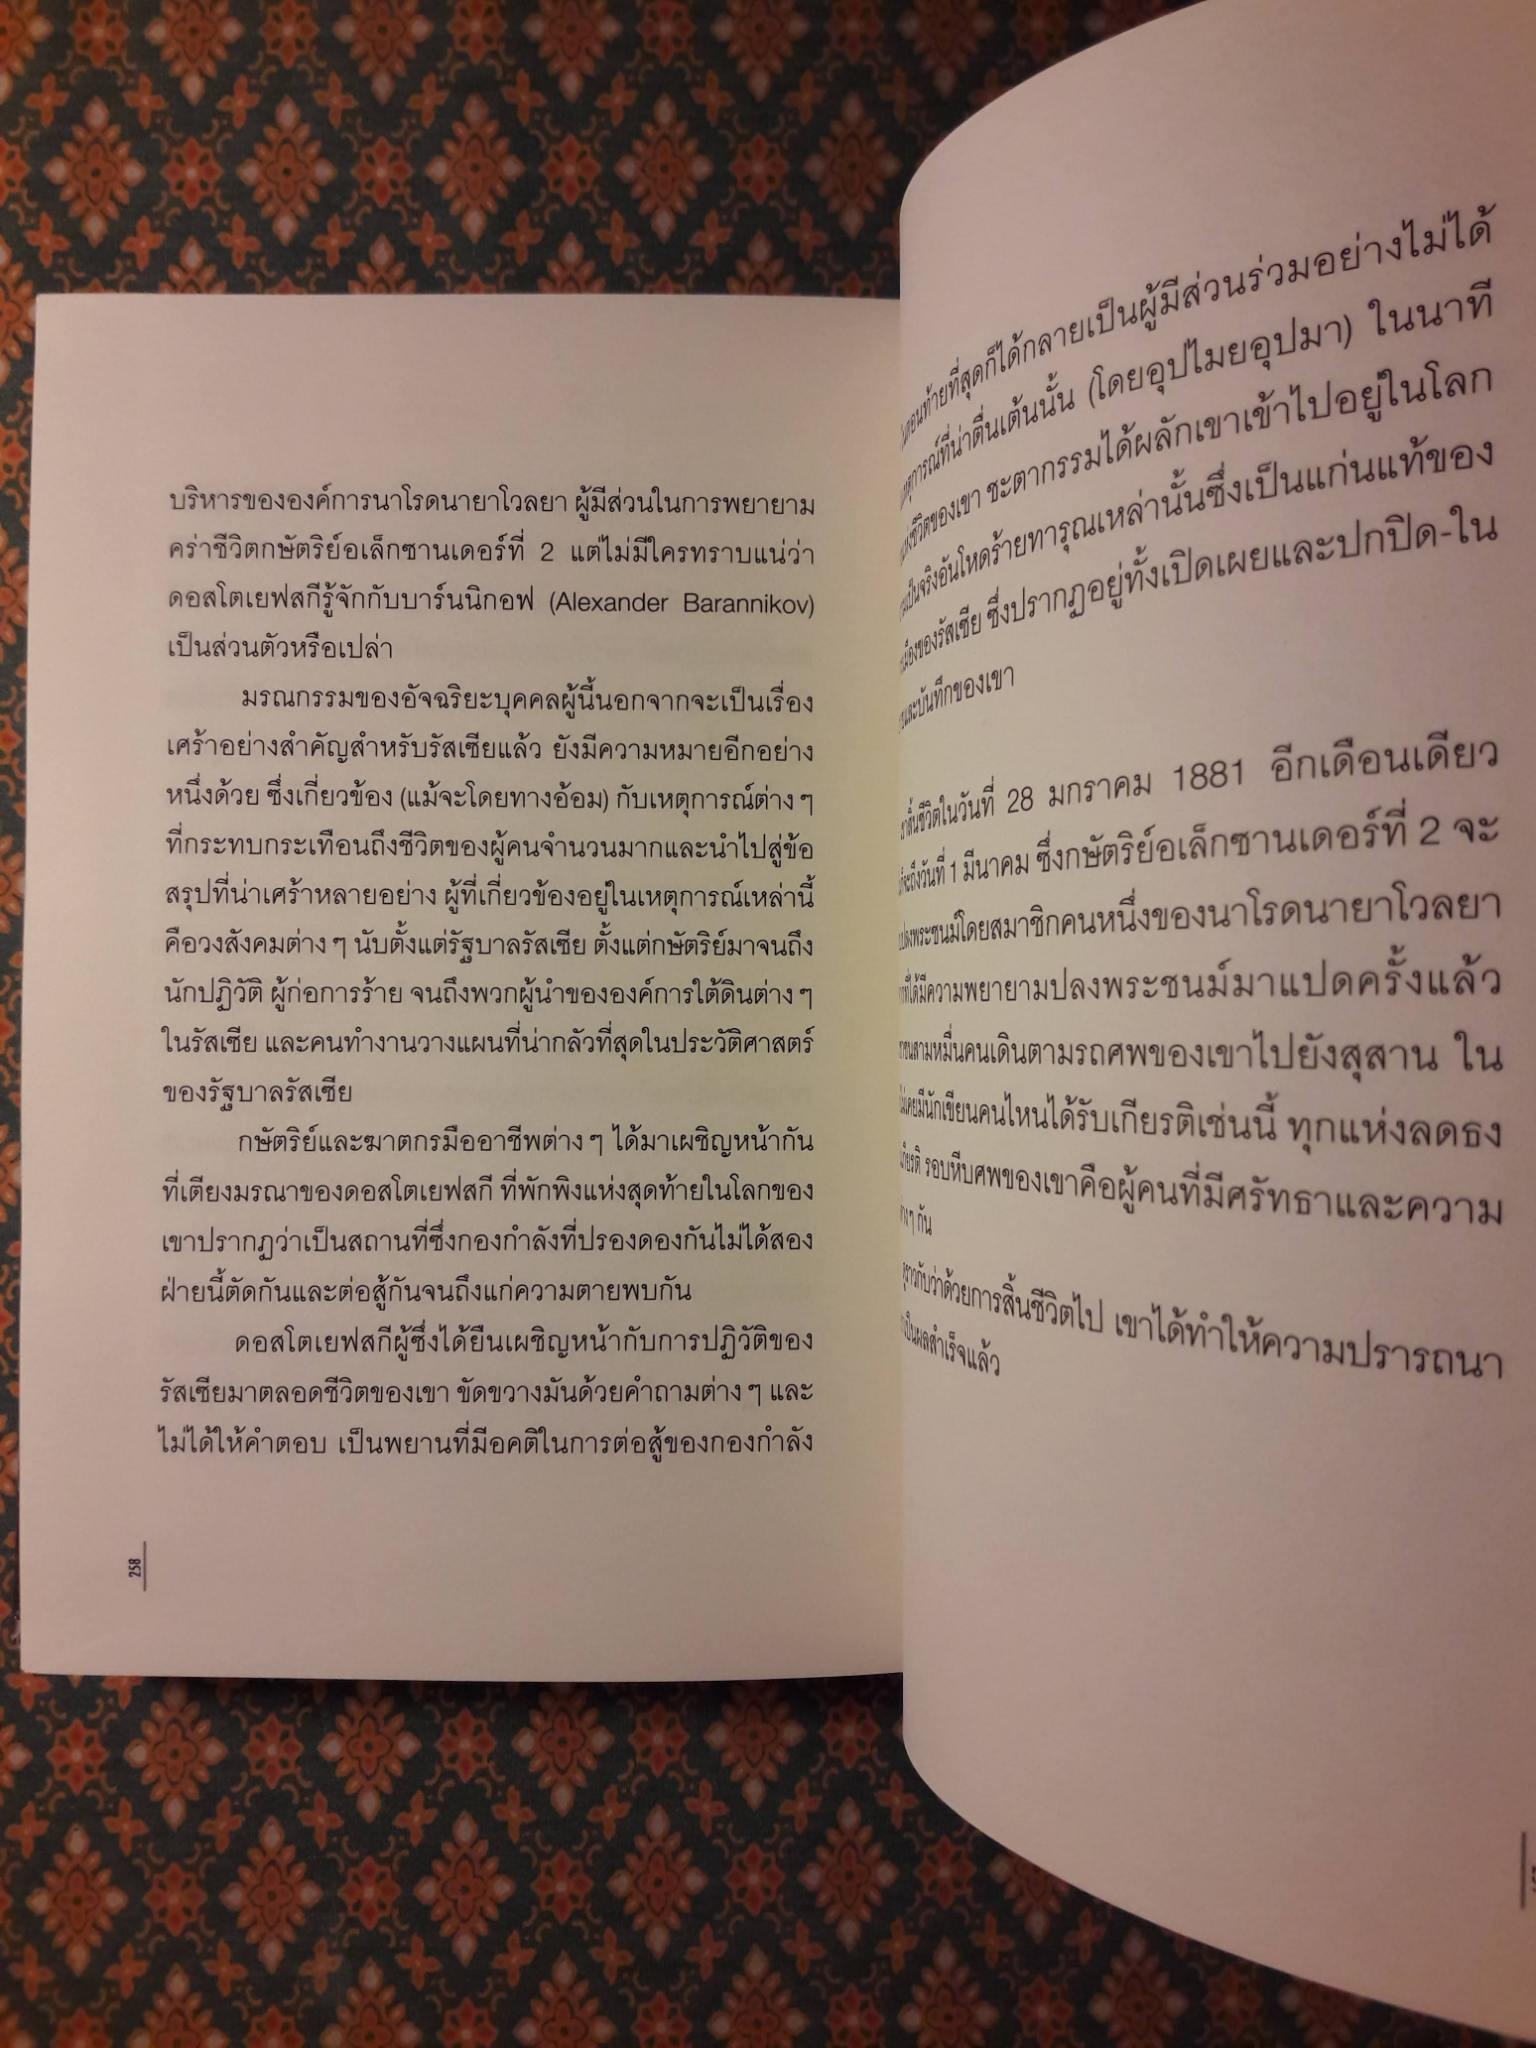 บริหารขององค์การนาโรดนายาโวลยา ผู้มีส่วนในการพยายาม
คร่าชีวิตกษัตริย์อเล็กซานเดอร์ที่ 2 แต่ไม่มีใครทราบแน่ว่า
ดอสโตเยฟสกีรู้จักกับบาร์นนิกอฟ (Alexander Barannikov)
เป็นส่วนตัวหรือเปล่า
มรณกรรมของอัจฉริยะบุคคลผู้นี้นอกจากจะเป็นเรื่อง
เศร้าอย่างสำคัญสำหรับรัสเซียแล้ว ยังมีความหมายอีกอย่าง
หนึ่งด้วย ซึ่งเกี่ยวข้อง (แม้จะโดยทางอ้อม) กับเหตุการณ์ต่างๆ
ที่กระทบกระเทือนถึงชีวิตของผู้คนจำนวนมากและนำไปสู่ข้อ
สรุปที่น่าเศร้าหลายอย่าง ผู้ที่เกี่ยวข้องอยู่ในเหตุการณ์เหล่านี้
คือวงสังคมต่างๆ นับตั้งแต่รัฐบาลรัสเซีย ตั้งแต่กษัตริย์มาจนถึง
นักปฏิวัติ ผู้ก่อการร้าย จนถึงพวกผู้นำขององค์การใต้ดินต่างๆ
ในรัสเซีย และคนทำงานวางแผนที่น่ากลัวที่สุดในประวัติศาสตร์
ของรัฐบาลรัสเซีย
กษัตริย์และฆาตกรมืออาชีพต่างๆ ได้มาเผชิญหน้ากัน
ที่เตียงมรณาของดอสโตเยฟสกี ที่พักพิงแห่งสุดท้ายในโลกของ
เขาปรากฏว่าเป็นสถานที่ซึ่งกองกำลังที่ปรองดองกันไม่ได้สอง
ฝ่ายนี้ตัดกันและต่อสู้กันจนถึงแก่ความตายพบกัน
ดอสโตเยฟสกีผู้ซึ่งได้ยืนเผชิญหน้ากับการปฏิวัติของ
รัสเซียมาตลอดชีวิตของเขา ขัดขวางมันด้วยคำถามต่างๆ และ
ไม่ได้ให้คำตอบ เป็นพยานที่มีอคติในการต่อสู้ของกองกำลัง
258
ตอนท้ายที่สุดก็ได้กลายเป็นผู้มีส่วนร่วมอย่างไม่ได้
ที่น่าตื่นเต้นนั้น (โดยอุปไมยอุปมา) ในนาที
แห่งชีวิตของเขา ชะตากรรมได้ผลักเขาเข้าไปอยู่ในโลก
เป็นจริงอันโหดร้ายทารุณเหล่านั้นซึ่งเป็นแก่นแท้ของ
ของรัสเซีย ซึ่งปรากฏอยู่ทั้งเปิดเผยและปกปิด-ใน
และบันทึกของเขา
สิ้นชีวิตในวันที่ 28 มกราคม 1881 อีกเดือนเดียว
จะถึงวันที่ 1 มีนาคม ซึ่งกษัตริย์อเล็กซานเดอร์ที่ 2 จะ
ปลงพระชนม์โดยสมาชิกคนหนึ่งของนาโรดนายาโวลยา
ที่ได้มีความพยายามปลงพระชนม์มาแปดครั้งแล้ว
สามหมื่นคนเดินตามรถศพของเขาไปยังสุสาน ใน
ไม่เคยมีนักเขียนคนไหนได้รับเกียรติเช่นนี้ ทุกแห่งลดธง
เกียรติ รอบหีบศพของเขาคือผู้คนที่มีศรัทธาและความ
ต่างๆ กัน
ราวกับว่าด้วยการสิ้นชีวิตไป เขาได้ทำให้ความปรารถนา
เป็นผลสำเร็จแล้ว